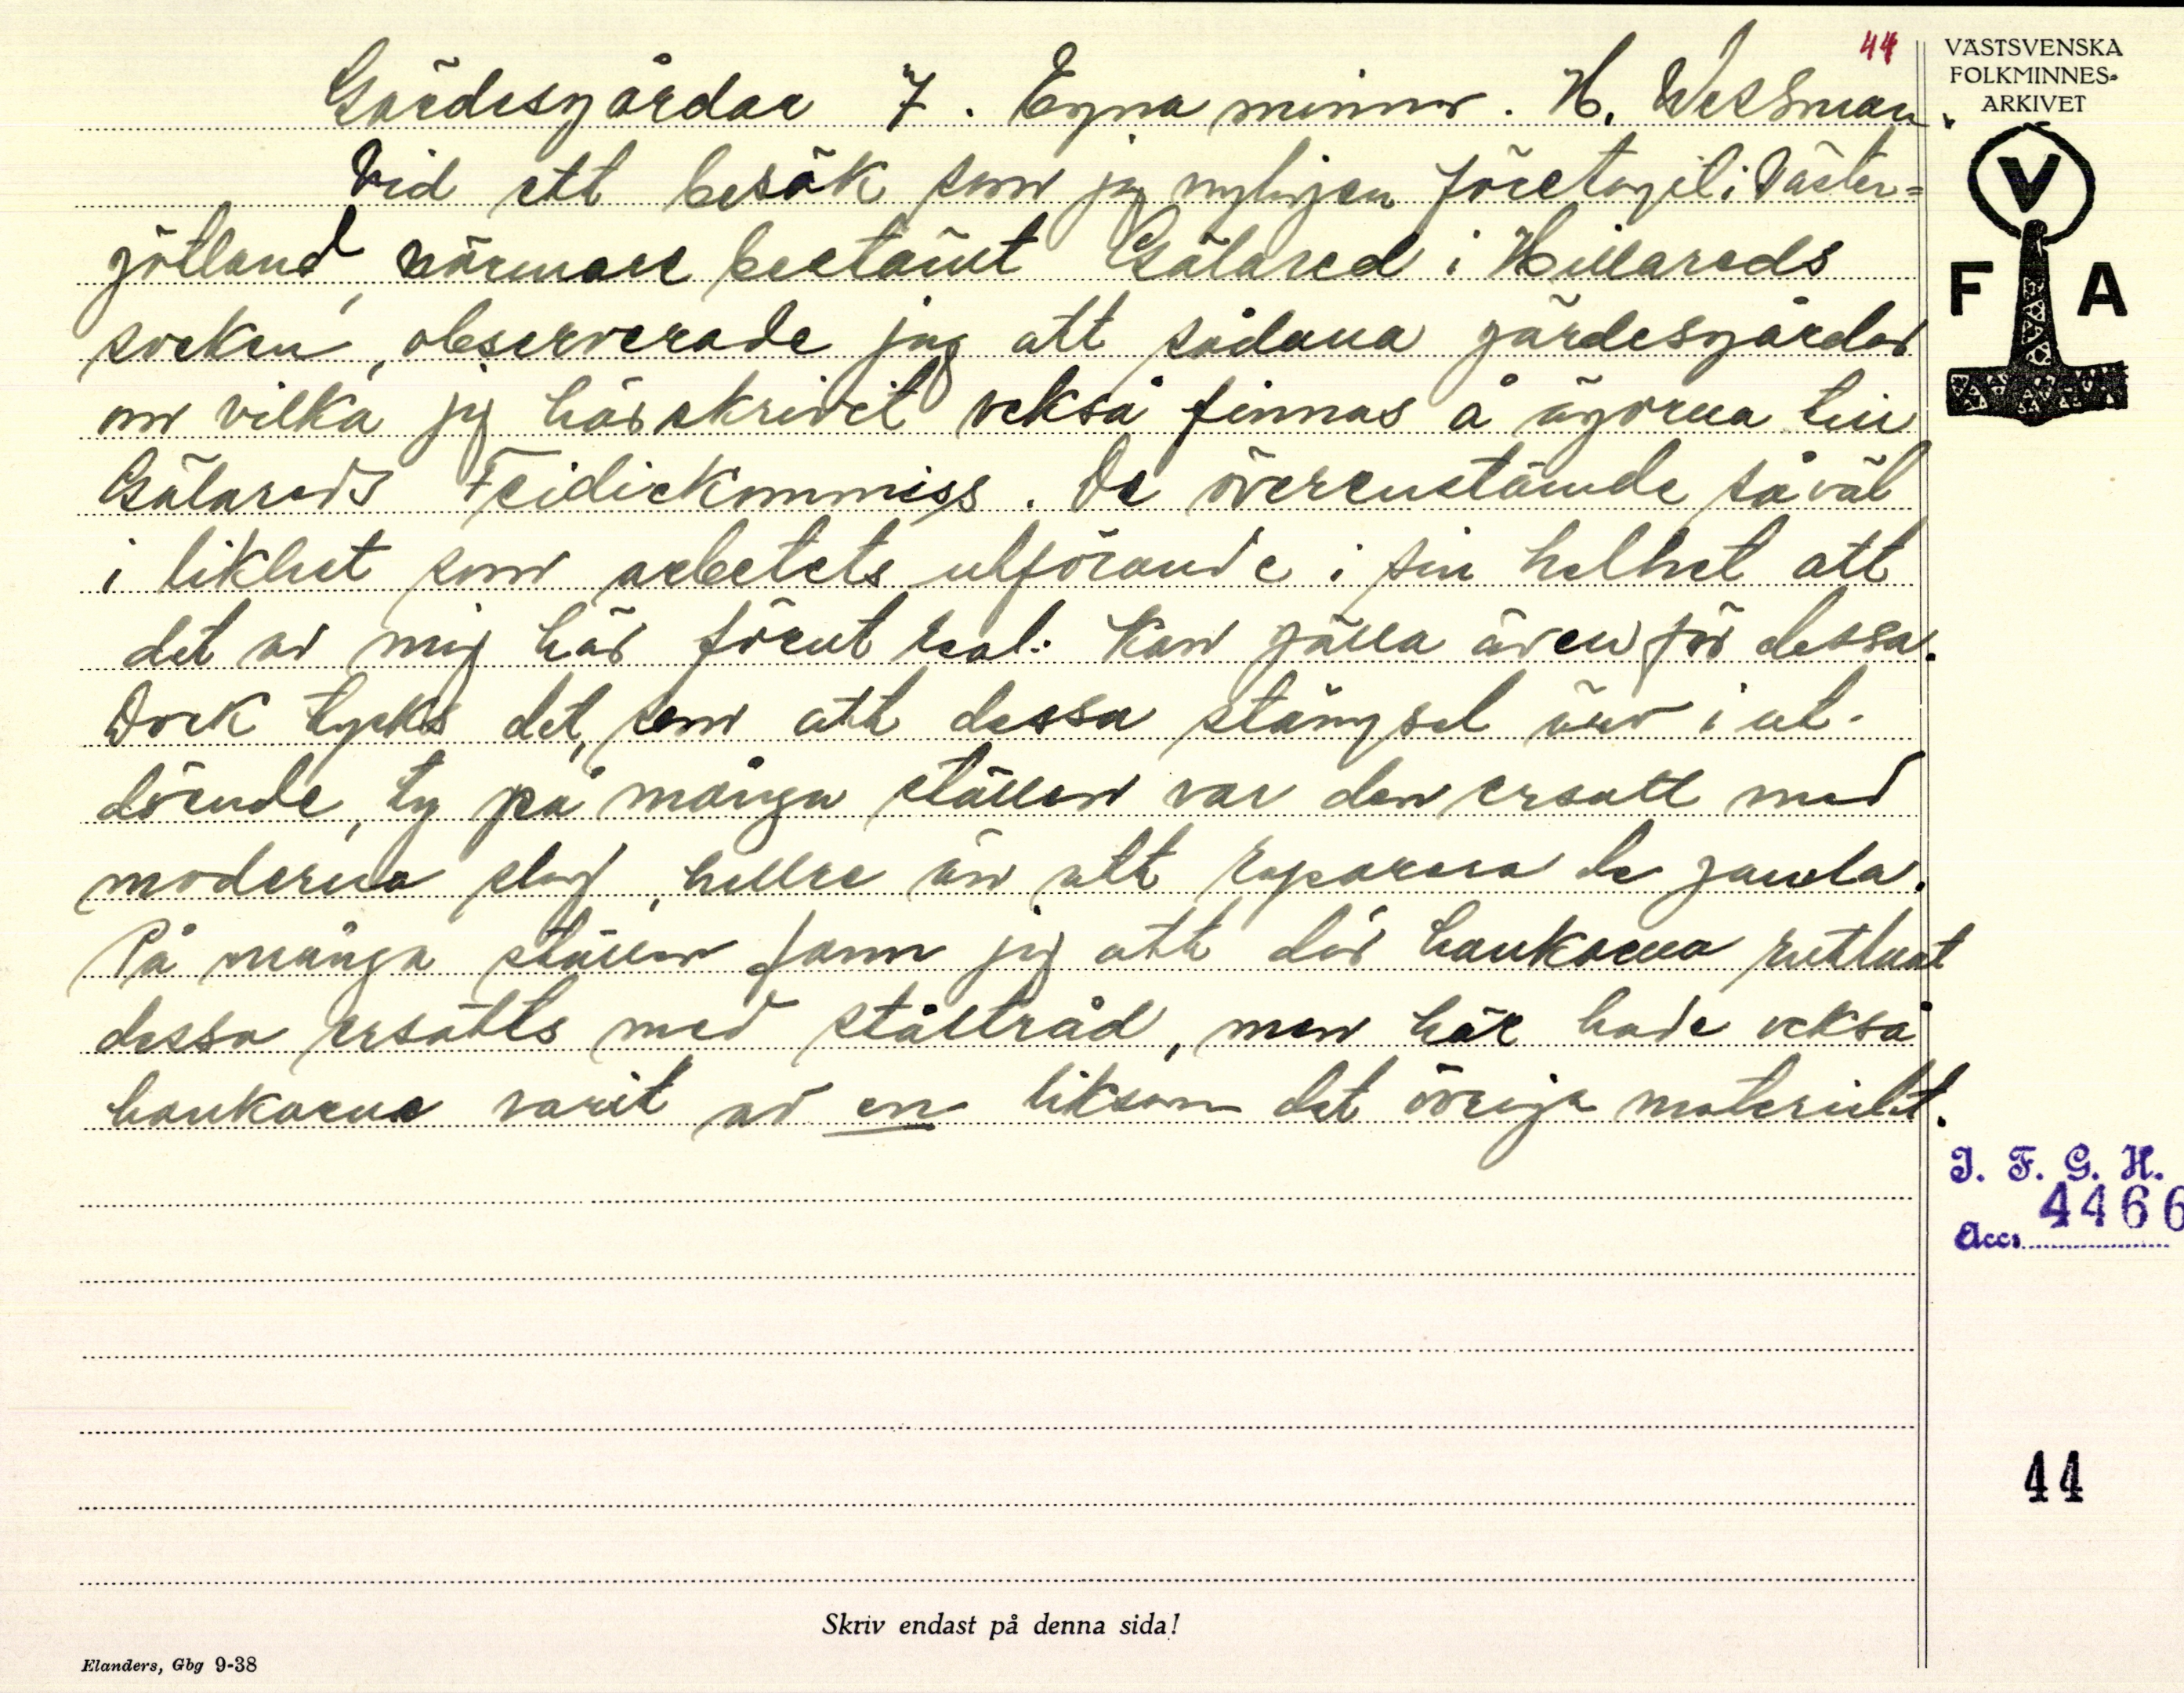 44
VÄSTSVENSKA
FOLKMINNES-
ARKIVET
V
F A
Gärdesgårdar 7. Egna minnen. H. Wessman.
Vid ett besök som jag nyligen företagit i Väster=
götland, närmare bestämt Gälared i Hillareds
socken, observerade jag att sådana gärdesgårdar
om vilka jag här skrivit också finnas å ägorna till
Gälareds Feidickommiss. De överenstämde såväl
i likhet som arbetets utförande i sin helhet att
det av mig här förut kan gälla även för dessa.
Dock tycks det, som att dessa stängsel äro i ut-
döende, ty på många ställen var den ersatt med
moderna slag, hellre än att reparera de gamla.
På många ställen fann jag att där hankarna ruttnat
dessa ersatts med ståltråd, men här hade också
hankarna varit av en liksom det övriga materialet.
I. F. G. H.
4466
Acc.
44
Skriv endast på denna sida!
Elanders, Gbg 9-38